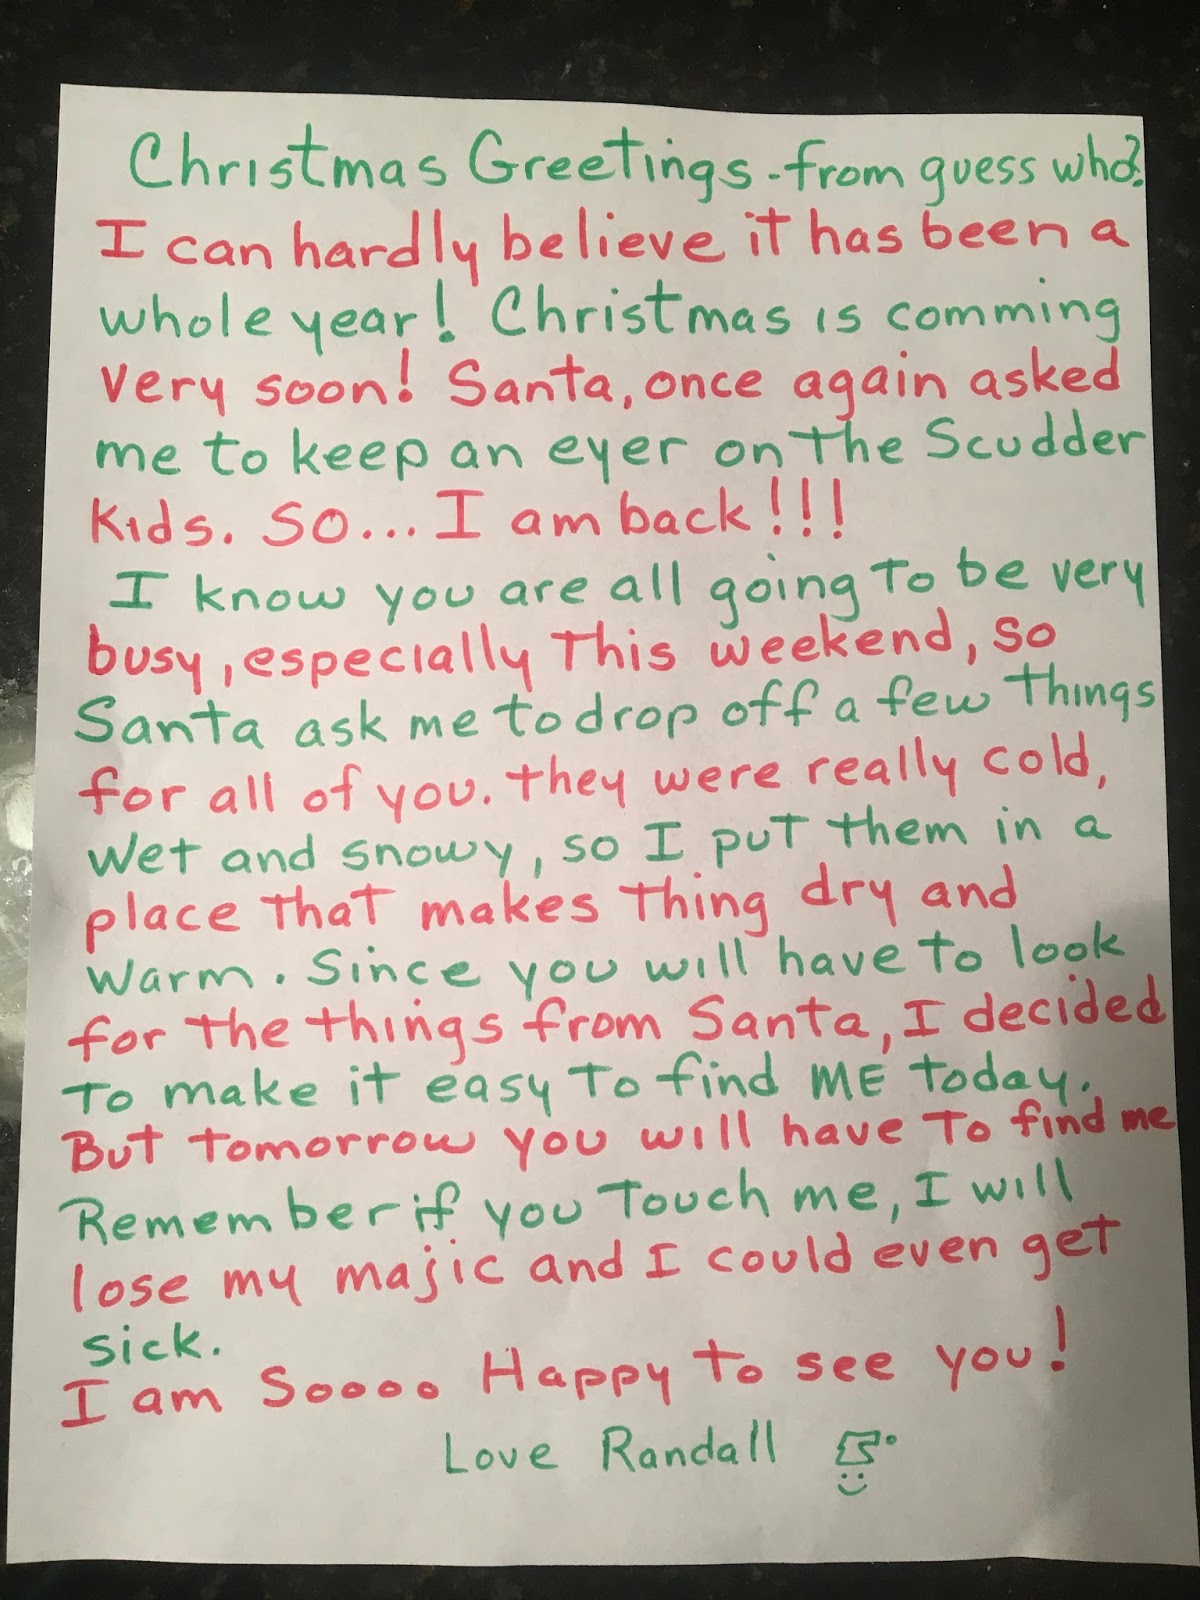 Christmas Greetings - from guess who?
I can hardly believe it has been a
whole year! Christmas is comming
very soon! Santa, once again asked
me to keep an eyer on the Scudder
kids. So... I am back!!!
I know you are all going to be very
busy, especially this weekend, so
Santa ask me to drop off a few things
for all of you. They were really cold,
wet and snowy, so I put them in a
place that makes thing dry and
warm. Since you will have to look
for the things from Santa, I decided
to make it easy to find ME today.
But tomorrow you will have to find me
Remember if you touch me, I will
lose my majic and I could even get
sick.
I am Soooo Happy to see you!
Love Randall